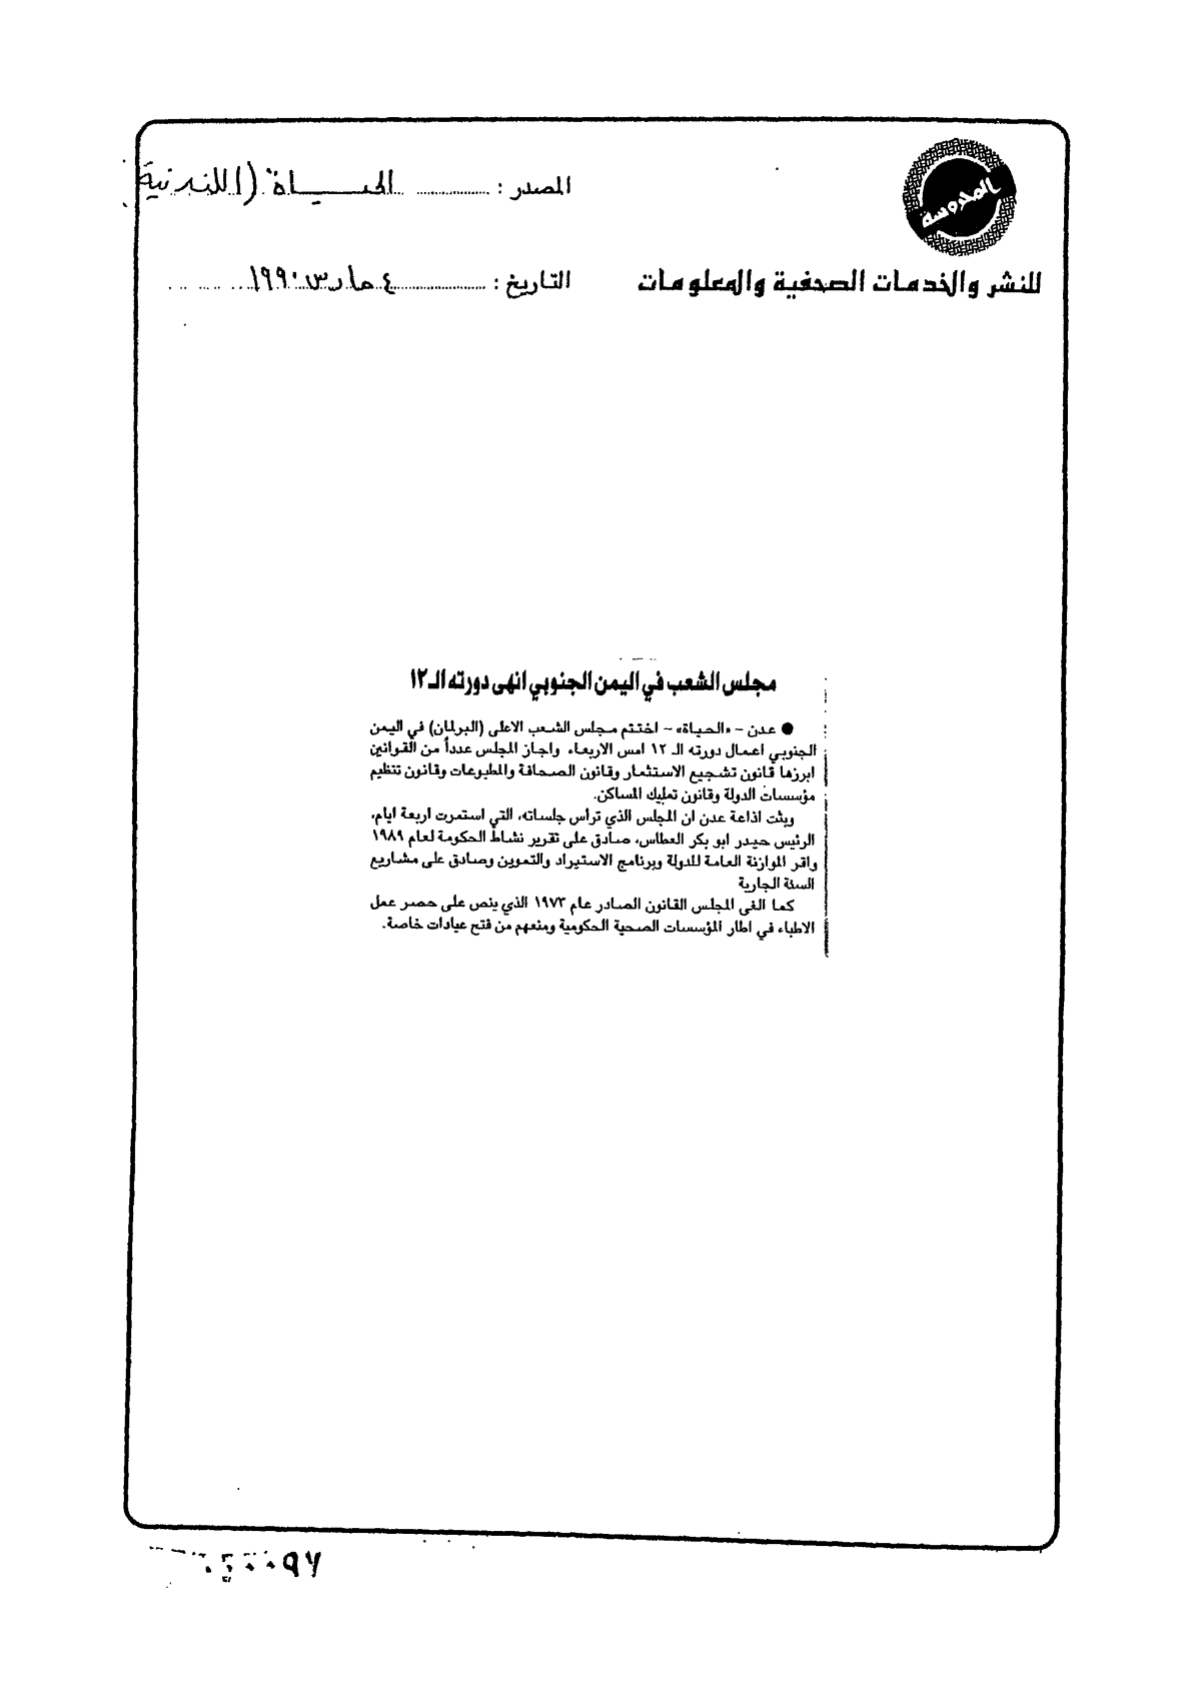 المحروسة
للنشر والخدمات الصحفية والمعلومات
المصدر : الحياة (اللندنية)
التاريخ : ٤ مارس ١٩٩٠
مجلس الشعب في اليمن الجنوبي انهى دورته الـ ١٢
● عدن – «الحياة» – اختتم مجلس الشعب الاعلى (البرلمان) في اليمن
الجنوبي اعمال دورته الـ ١٢ امس الاربعاء واجاز المجلس عدداً من القوانين
ابرزها قانون تشجيع الاستثمار وقانون الصحافة والمطبوعات وقانون تنظيم
مؤسسات الدولة وقانون تمليك المساكن.
وبثت اذاعة عدن ان المجلس الذي ترأس جلساته، التي استمرت اربعة ايام،
الرئيس حيدر ابو بكر العطاس، صادق على تقرير نشاط الحكومة لعام ١٩٨٩
واقر الموازنة العامة للدولة وبرنامج الاستيراد والتموين وصادق على مشاريع
السنة الجارية
كما الغى المجلس القانون الصادر عام ١٩٧٣ الذي ينص على حصر عمل
الاطباء في اطار المؤسسات الصحية الحكومية ومنعهم من فتح عيادات خاصة.